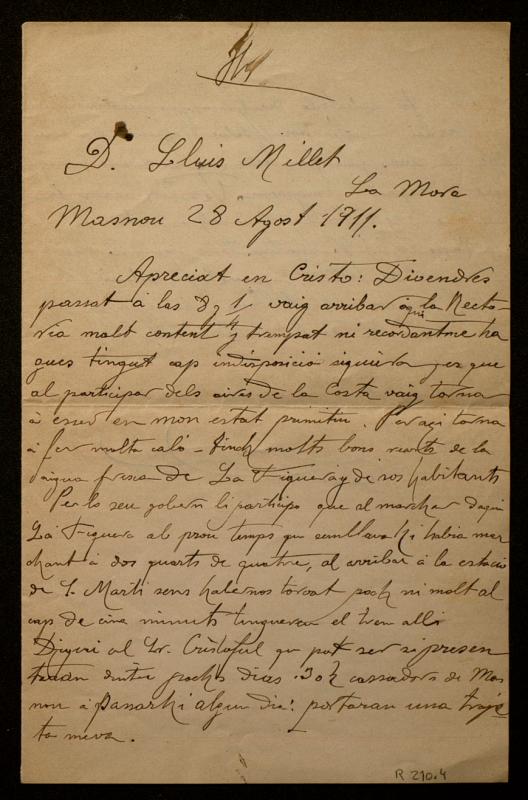 D. Lluis Millet
La Mora
Masnou 28 Agost 1911.
Apreciat en Cristo: Divendres
passat á las 8 y 1/4 vaig arribar aqui la Recto-
ria molt content y trempat ni recordantme ha
gues tingut cap indisposició siquiera, y es que
al participar dels aires de la Costa vaig torna
á esser en mon estat primitiu. Per aqi torna
á fer molta caló - Tinch molts bons recorts de la
aigua fresca de La Figuera y de sos habitants
Per lo seu gobern li participo que al marchar d'aqui
La Figuera ab prou temps que semblava hi habia mar
chant á dos quarts de quatre, al arribar á la estació
de S. Martí sens habernos torbat poch ni molt al
cap de cinc minuts tinguerem el tren alli
Digui al Sr. Cristoful que pot ser se presen
taran dintre pochs dias 3 o 4 cassadors de Mas
nou á passarhi algun dia: portaran una targe
ta meva.
R 210.4